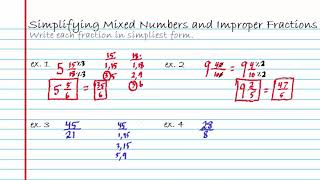 Simplifying Mixed Numbers and Improper Fractions
Write each fraction in simpliest form.
ex. 1 5 15/18 ÷3 ÷3
15
1, 15
3
18:
1, 18
2, 9
6
5 5/6 = 35/6
ex. 2 9 4/10 ÷2 ÷2
9 2/5 = 47/5
ex. 3 45/21
45
1, 45
3, 15
5, 9
ex. 4 28/8